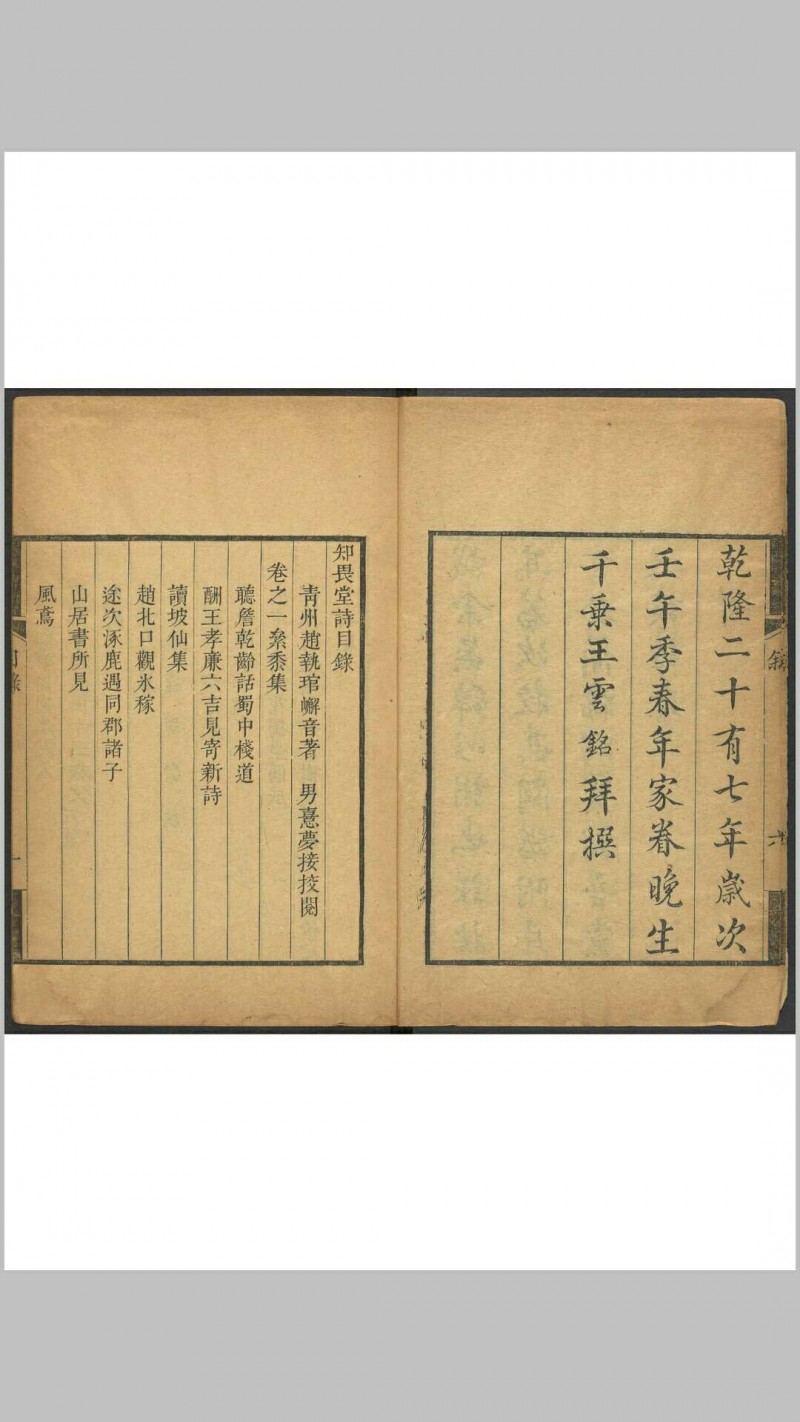 乾隆二十有七年歲次
壬午季春年家眷晚生
千乗王雲銘拜撰
知畏堂詩目錄
青州趙執琯嶰音著 男憙夢接挍閱
卷之一絫黍集
聽詹乾齡話蜀中棧道
酬王孝亷六吉見寄新詩
讀坡仙集
趙北口觀氷稼
途次涿鹿遇同郡諸子
山居書所見
風鳶